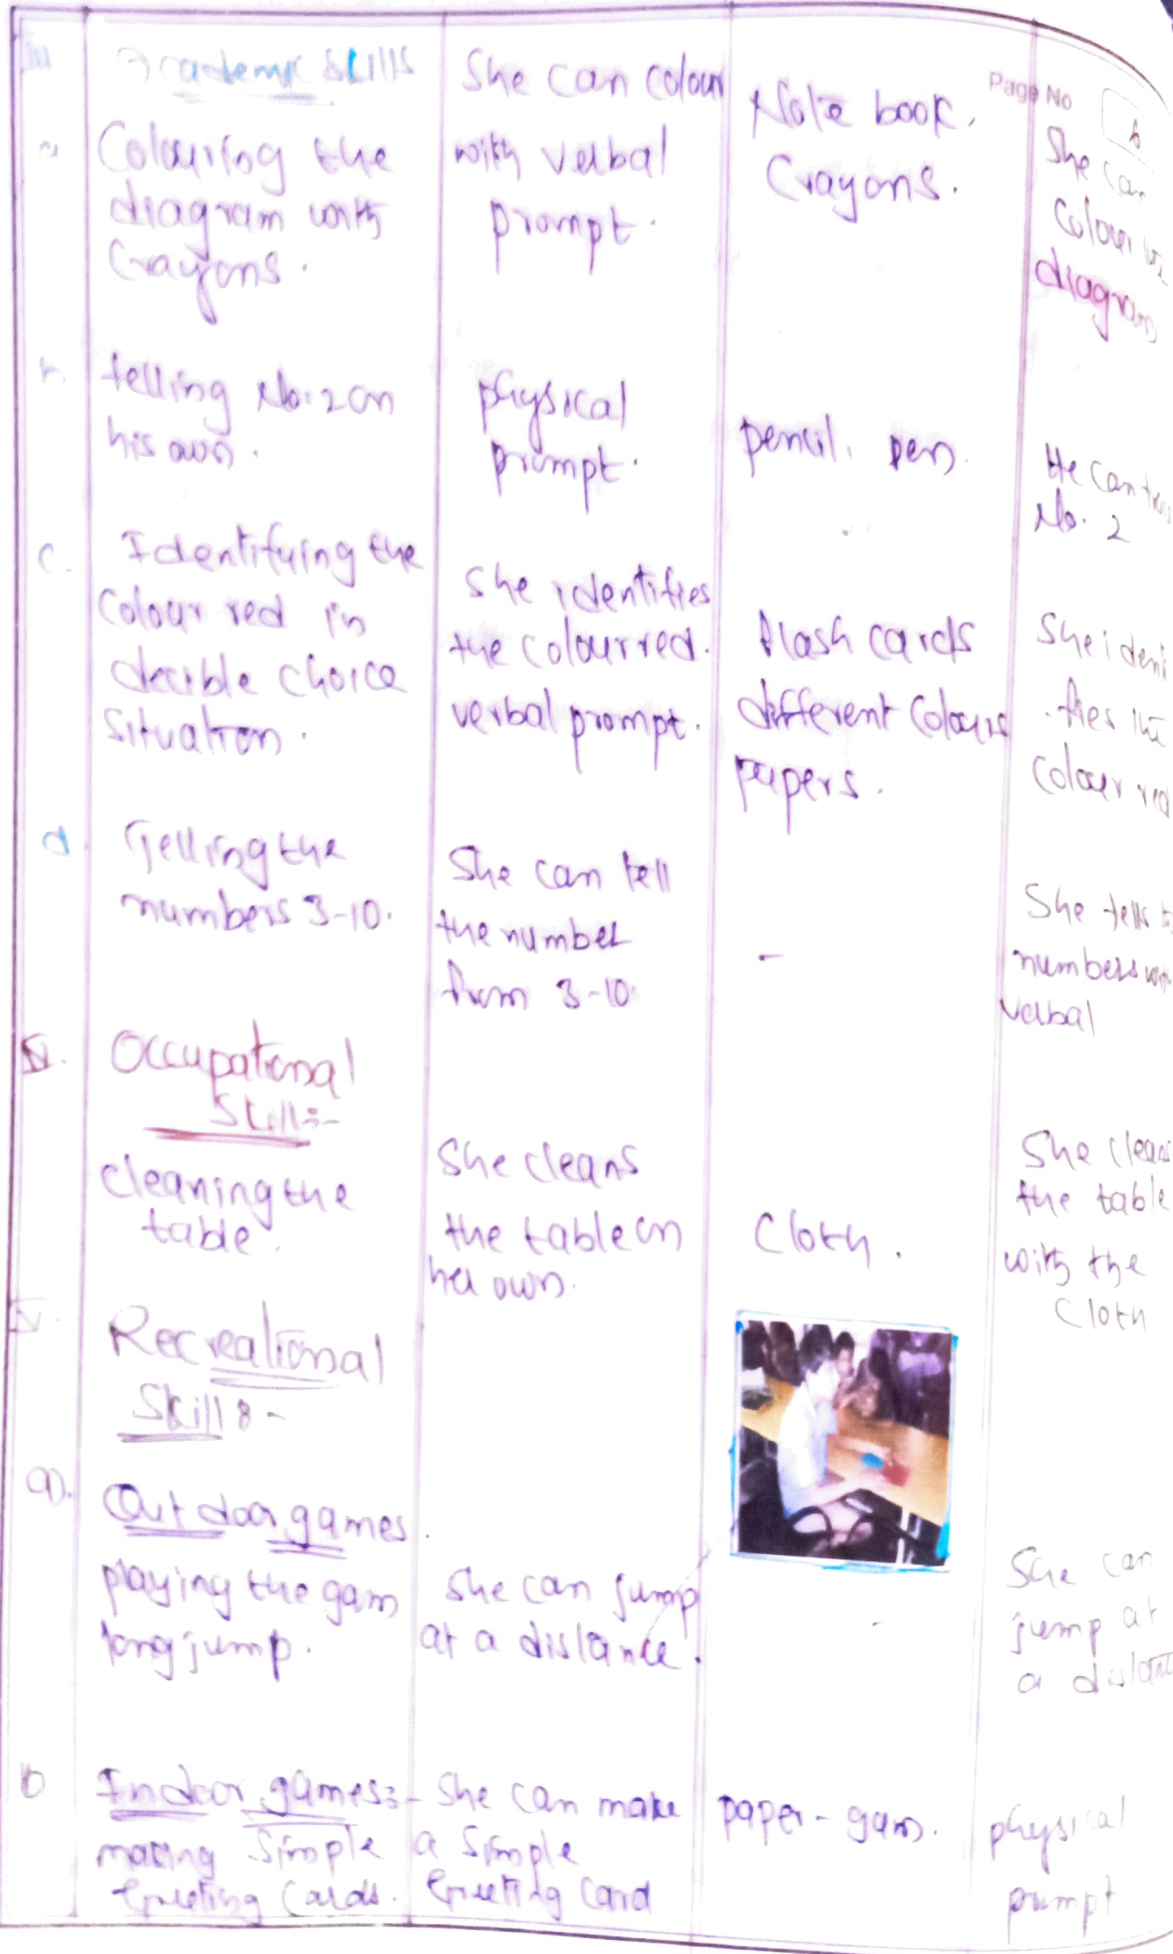 Page No
6
III
Academic Skills
a
Colouring the
diagram with
Crayons.
She can colour
with verbal
prompt.
Note book,
Crayons.
She can
Colour
diagram
b.
telling No. 2 on
his own.
physical
prompt.
pencil, pen.
He can
No. 2
c.
Identifying the
Colour red in
decible choice
Situation.
She identifies
the colour red.
verbal prompt.
flash cards
different Colours
papers.
She identi
-fies the
Colour red
d
Telling the
numbers 3-10.
She can tell
the number
from 3-10.
-
She tells
numbers with
verbal
IV.
Occupational
Skill:-
Cleaning the
table.
She cleans
the table on
her own.
Cloth.
She cleans
the table
with the
Cloth
V.
Recreational
Skill:-
a).
Out door games.
playing the gam
long jump.
She can jump
at a distance.
-
She can
jump at
a distance
b
Indoor games:-
making Simple
Greeting Cards.
She can make
a Simple
Greeting Card
paper - gum.
physical
prompt